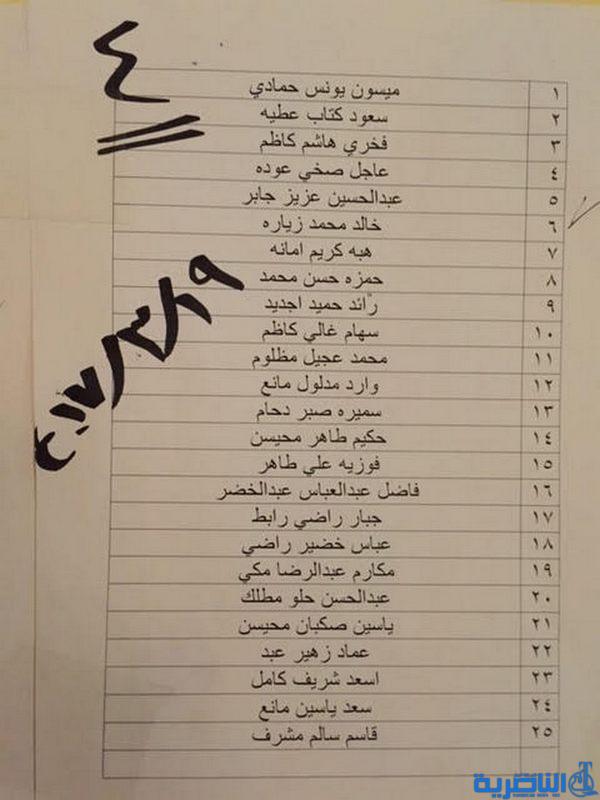 ٤
١ ميسون يونس حمادي
٢ سعود كتاب عطيه
٣ فخري هاشم كاظم
٤ عاجل صخي عوده
٥ عبدالحسين عزيز جابر
٦ خالد محمد زياره
٧ هبه كريم امانه
٨ حمزه حسن محمد
٩ رائد حميد اجديد
١٠ سهام غالي كاظم
١١ محمد عجيل مظلوم
١٢ وارد مدلول مانع
١٣ سميره صبر دحام
١٤ حكيم طاهر محيسن
١٥ فوزيه علي طاهر
١٦ فاضل عبدالعباس عبدالخضر
١٧ جبار راضي رابط
١٨ عباس خضير راضي
١٩ مكارم عبدالرضا مكي
٢٠ عبدالحسن حلو مطلك
٢١ ياسين صكبان محيسن
٢٢ عماد زهير عبد
٢٣ اسعد شريف كامل
٢٤ سعد ياسين مانع
٢٥ قاسم سالم مشرف
٢٠١٧/٣/١٩
الناصرية